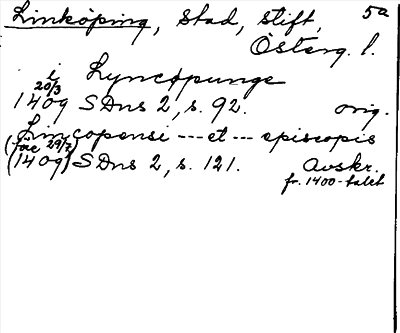 Linköping, stad, stift, 5a
Österg. l.
i Lyncøpunge
20/3
1409 SDns 2, s. 92. orig.
Lincopensi --- et --- episcopis
(före 29/7)
(1409) SDns 2, s. 121. Avskr.
fr. 1400-talet